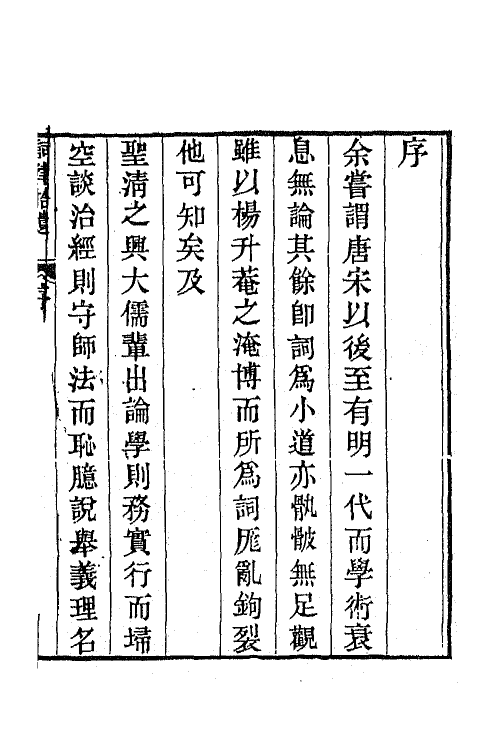 序
余嘗謂唐宋以後至有明一代而學術衰
息無論其餘卽詞爲小道亦骫骳無足觀
雖以楊升菴之淹博而所爲詞厖亂鉤裂
他可知矣及
聖淸之興大儒輩出論學則務實行而埽
空談治經則守師法而恥臆說舉義理名